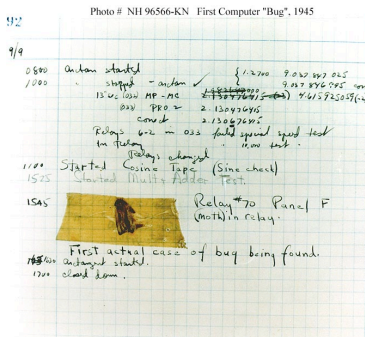 Photo # NH 96566-KN First Computer "Bug", 1945
92
9/9
0800 antan started
1000 " stopped - antan ✓ { 1.2700 9.037 847 025
9.037 846 995
13"uc (032) MP - MC 2.130476415 4.615925059(-2)
(033) PRO 2 2.130476415
2.130676415
Relays 6-2 in 033 failed special speed test
in relay " 10.000 test.
Relays changed
1100 Started Cosine Tape (Sine check)
1525 Started Mult + Adder Test.
1545 Relay #70 Panel F
(moth) in relay.
First actual case of bug being found.
1630 antangent started.
1700 closed down.